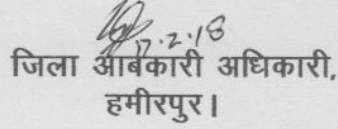 17.2.18
जिला आबकारी अधिकारी,
हमीरपुर।